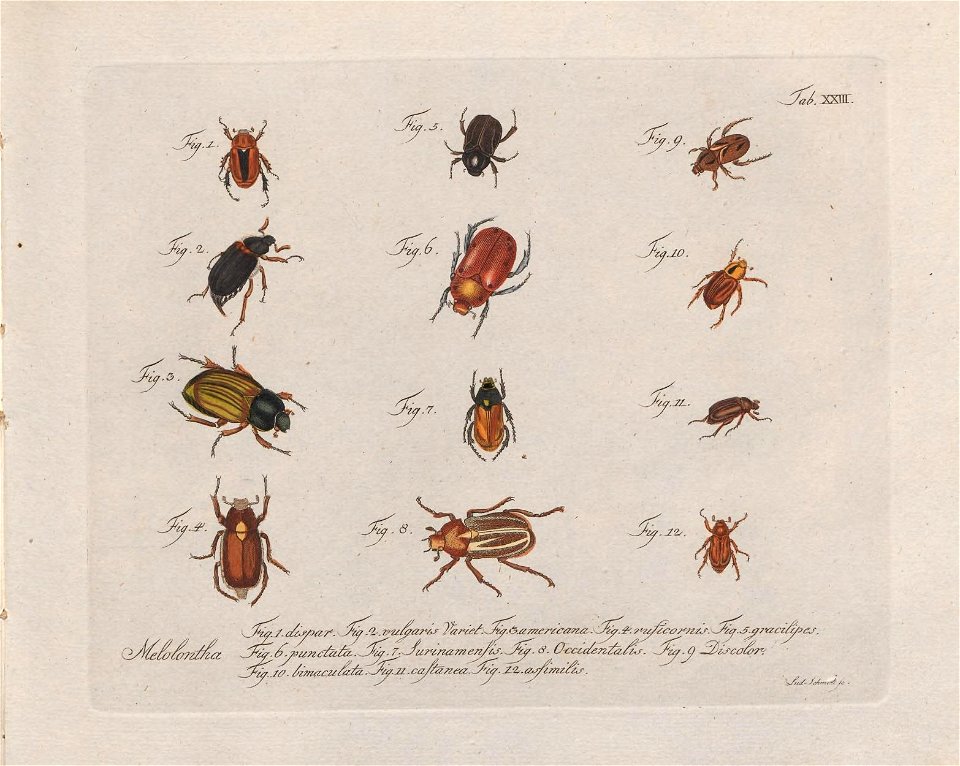 Tab. XXIII.
Fig. 1.
Fig. 5.
Fig. 9.
Fig. 2.
Fig. 6.
Fig. 10.
Fig. 3.
Fig. 7.
Fig. 11.
Fig. 4.
Fig. 8.
Fig. 12.
Fig. 1. dispar. Fig. 2. vulgaris Variet. Fig. 3. americana. Fig. 4. ruficornis. Fig. 5. gracilipes.
Melolontha Fig. 6. punctata. Fig. 7. Surinamensis. Fig. 8. Occidentalis. Fig. 9 Discolor.
Fig. 10. bimaculata. Fig. 11. castanea. Fig. 12. assimilis.
Lud. Schmidt fc.